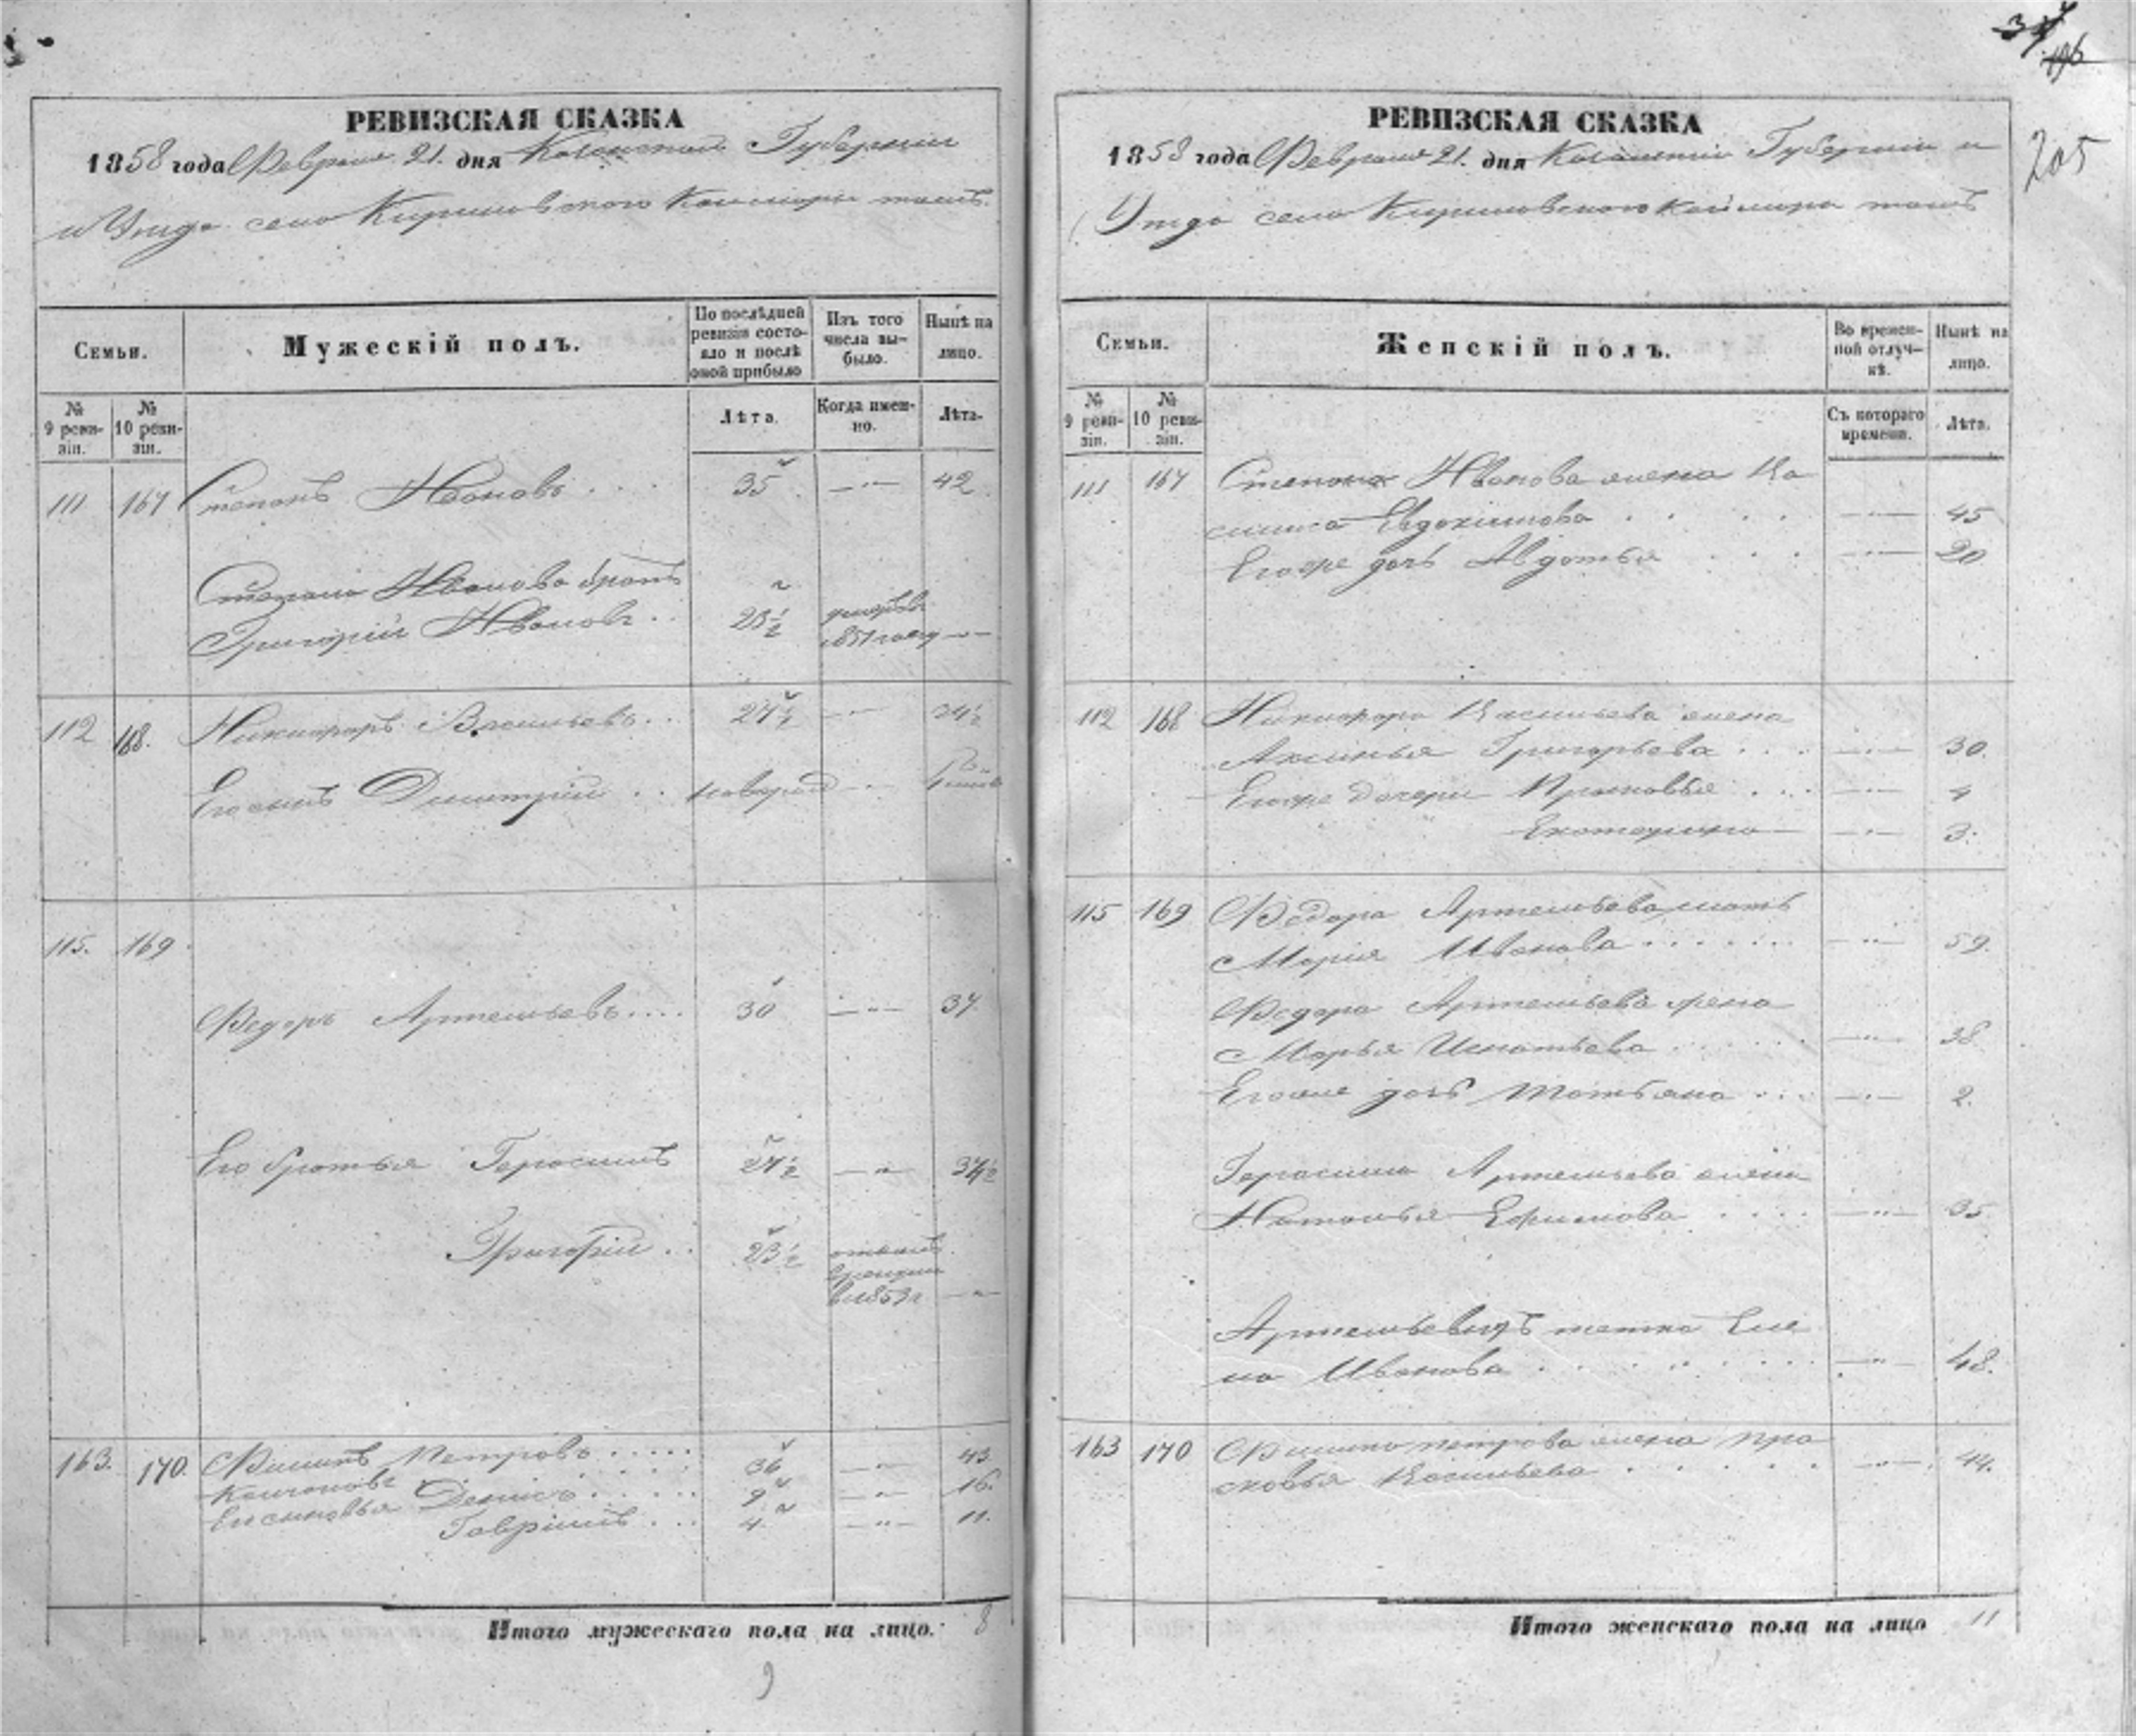 205
РЕВИЗСКАЯ СКАЗКА
1858 года Февраля 21. дня Казанской Губернии
и Уезда села Кириловского Каймары тожъ
Семьи.
Мужескій полъ.
По последней ревизіи состояло и послѣ оной прибыло
Изъ того числа выбыло.
Нынѣ на лицо.
№ 9 ревизіи.
№ 10 ревизіи.
Лѣта.
Когда именно.
Лѣта.
111 167 Степанъ Ивановъ . . . 35 —"— 42
Степана Иванова братъ
Григорій Ивановъ . . 23½ умеръ въ 1851 году —"—
112 168. Никифоръ Васильевъ . . 27½ —"— 34½
Его сынъ Дмитрій . . новорож —"—
115. 169
Федоръ Артемьевъ . . . . 30 —"— 37.
Его братья Герасимъ 27½ —"— 34½
Григорій . . 23½ —"—
163. 170. Филипъ Петровъ . . . . . 36 —"— 43
Его сыновья Денисъ . . . . . 9 —"— 16.
Гаврилъ . . . 4. —"— 11.
Итого мужескаго пола на лицо. 8
9
РЕВИЗСКАЯ СКАЗКА
1858 года Февраля 21. дня Казанской Губерніи и
Уезда села Кириловского Каймары тожъ
Семьи.
Женскій полъ.
Во временной отлучкѣ.
Нынѣ на лицо.
№ 9 ревизіи.
№ 10 ревизіи.
Съ котораго времени.
Лѣта.
111 167 Степана Иванова жена Ва
силиса Евдокимова . . . . —"— 45
Его же дочь Авдотья . . . —"— 20
112 168 Никифора Васильева жена
Аксинья Григорьева . . . —"— 30.
Его же дочери Прасковья . . . —"— 4
Екатерина —"— 3.
115 169 Федора Артемьева мать
Марія Иванова . . . . . . —"— 59.
Федора Артемьева жена
Марья Игнатьева . . . . —"— 38
Его же дочь Татьяна . . . —"— 2.
Герасима Артемьева жена
Наталья Ефимова . . . . —"— 35
Артемьевыхъ тетка Еле
на Иванова . . . . . . . —"— 48.
163 170 Филипа Петрова жена Пра
сковья Васильева . . . . . —"— 44.
Итого женскаго пола на лицо 11